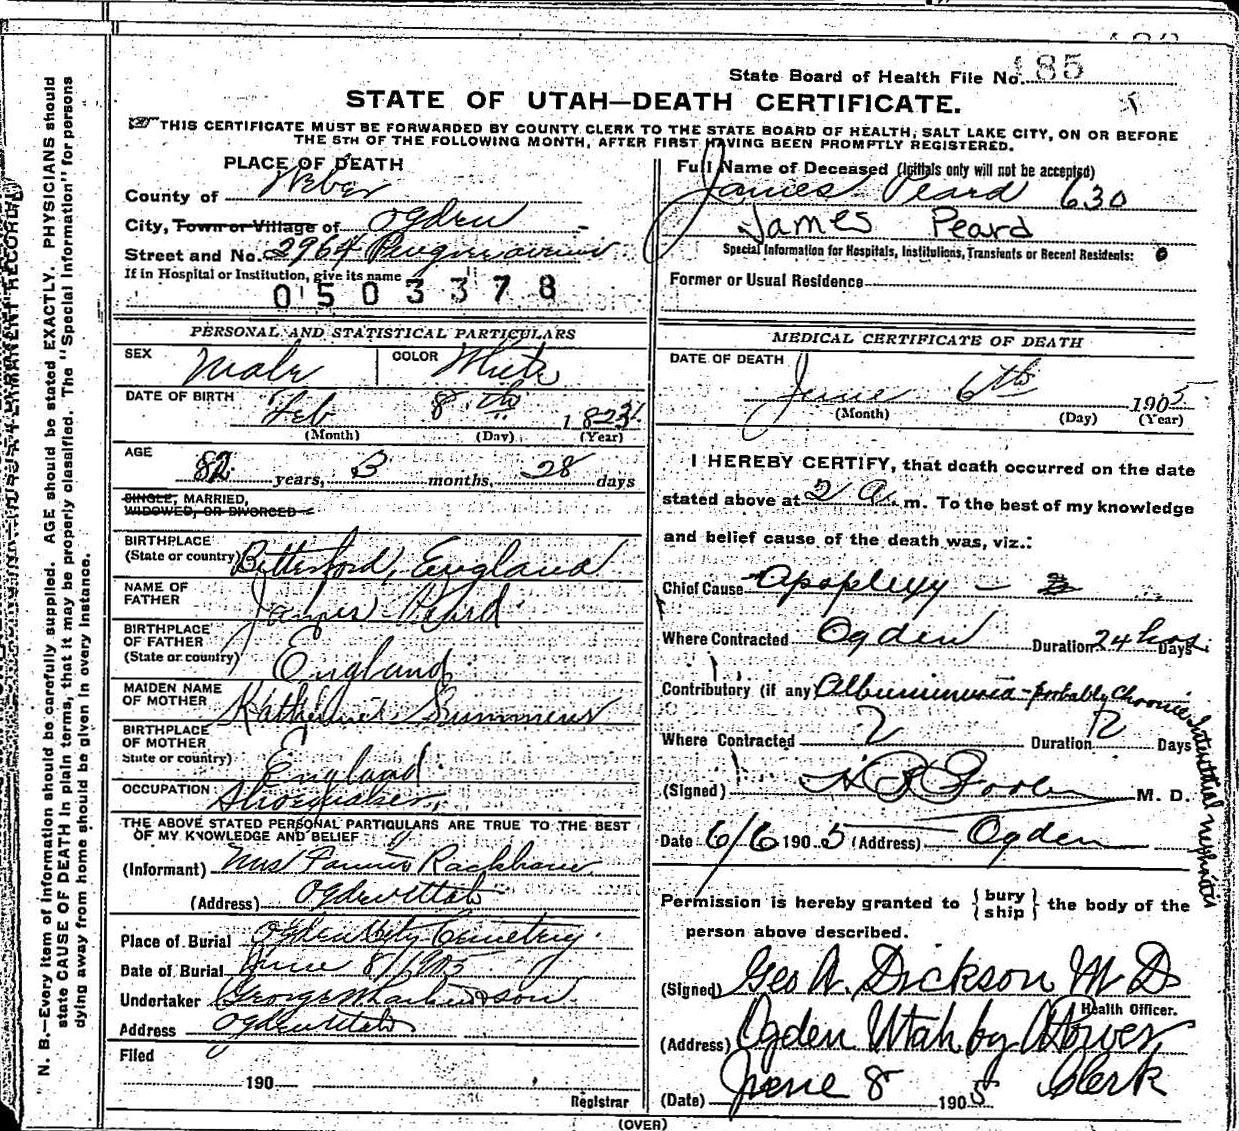 State Board of Health File No. 185
STATE OF UTAH—DEATH CERTIFICATE.
THIS CERTIFICATE MUST BE FORWARDED BY COUNTY CLERK TO THE STATE BOARD OF HEALTH, SALT LAKE CITY, ON OR BEFORE
THE 5TH OF THE FOLLOWING MONTH, AFTER FIRST HAVING BEEN PROMPTLY REGISTERED.
PLACE OF DEATH
County of Weber
City, Town or Village of Ogden
Street and No. 2964
If in Hospital or Institution, give its name
0503378
PERSONAL AND STATISTICAL PARTICULARS
SEX Male COLOR White
DATE OF BIRTH Feb 8th 1823
(Month) (Day) (Year)
AGE 82 years, 3 months, 28 days
SINGLE, MARRIED,
WIDOWED, OR DIVORCED
BIRTHPLACE
(State or country) England
NAME OF
FATHER James Peard
BIRTHPLACE
OF FATHER
(State or country) England
MAIDEN NAME
OF MOTHER Summers
BIRTHPLACE
OF MOTHER
State or country) England
OCCUPATION Shoemaker
THE ABOVE STATED PERSONAL PARTICULARS ARE TRUE TO THE BEST
OF MY KNOWLEDGE AND BELIEF
(Informant) Mrs Fannie Rackham
(Address) Ogden Utah
Place of Burial Ogden City Cemetery
Date of Burial June 8/1905
Undertaker George & son
Address Ogden Utah
Filed
190
Registrar
Full Name of Deceased (Initials only will not be accepted)
James Peard 630
James Peard
Special Information for Hospitals, Institutions, Transients or Recent Residents:
Former or Usual Residence
MEDICAL CERTIFICATE OF DEATH
DATE OF DEATH
June 6th 1905
(Month) (Day) (Year)
I HEREBY CERTIFY, that death occurred on the date
stated above at 2 A. m. To the best of my knowledge
and belief cause of the death was, viz.:
Chief Cause Apoplexy
Where Contracted Ogden Duration 24 hrs. Days
Contributory (if any) Albuminuria - probably Chronic Interstitial Nephritis
Where Contracted ? Duration ? Days
(Signed) M. D.
Date 6/6 1905 (Address) Ogden
Permission is hereby granted to { bury ship } the body of the
person above described.
(Signed) Geo A. Dickson M D
Health Officer.
(Address) Ogden Utah by
(Date) June 8 1905 Clerk
(OVER)
N. B.—Every item of information should be carefully supplied. AGE should be stated EXACTLY. PHYSICIANS should
state CAUSE OF DEATH in plain terms, that it may be properly classified. The "Special Information" for persons
dying away from home should be given in every instance.